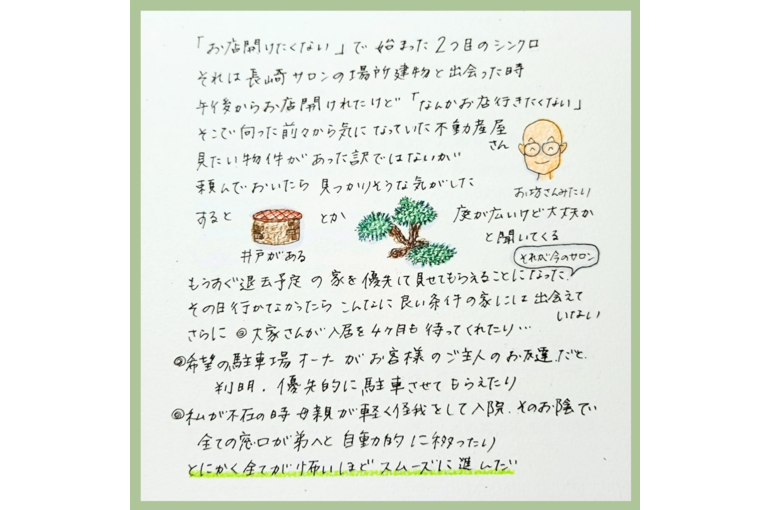 「お店開けたくない」で始まった2つ目のシンクロ
それは長崎サロンの場所建物と出会った時
午後からお店開けれたけど「なんかお店行きたくない」
そこで向った前々から気になっていた不動産屋さん
見たい物件があった訳ではないが
お坊さんみたい
頼んでおいたら見つかりそうな気がした
すると
井戸がある
とか
庭が広いけど大丈夫か
と聞いてくる
それが今のサロン
もうすぐ退去予定の家を優先して見せてもらえることになった.
その日行かなかったらこんなに良い条件の家には出会えていない
さらに◎大家さんが入居を4ヶ月も待ってくれたり…
◎希望の駐車場オーナーがお客様のご主人のお友達だと
判明.優先的に駐車させてもらえたり
◎私が不在の時母親が軽く怪我をして入院.そのお陰で
全ての窓口が弟へと自動的に移ったり
とにかく全てが怖いほどスムーズに進んだ